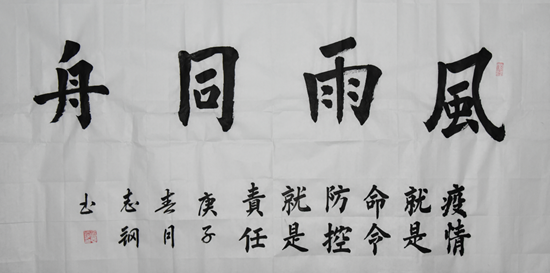 風雨同舟
疫情
就是
命令
防控
就是
責任
庚子
春月
志钢
书